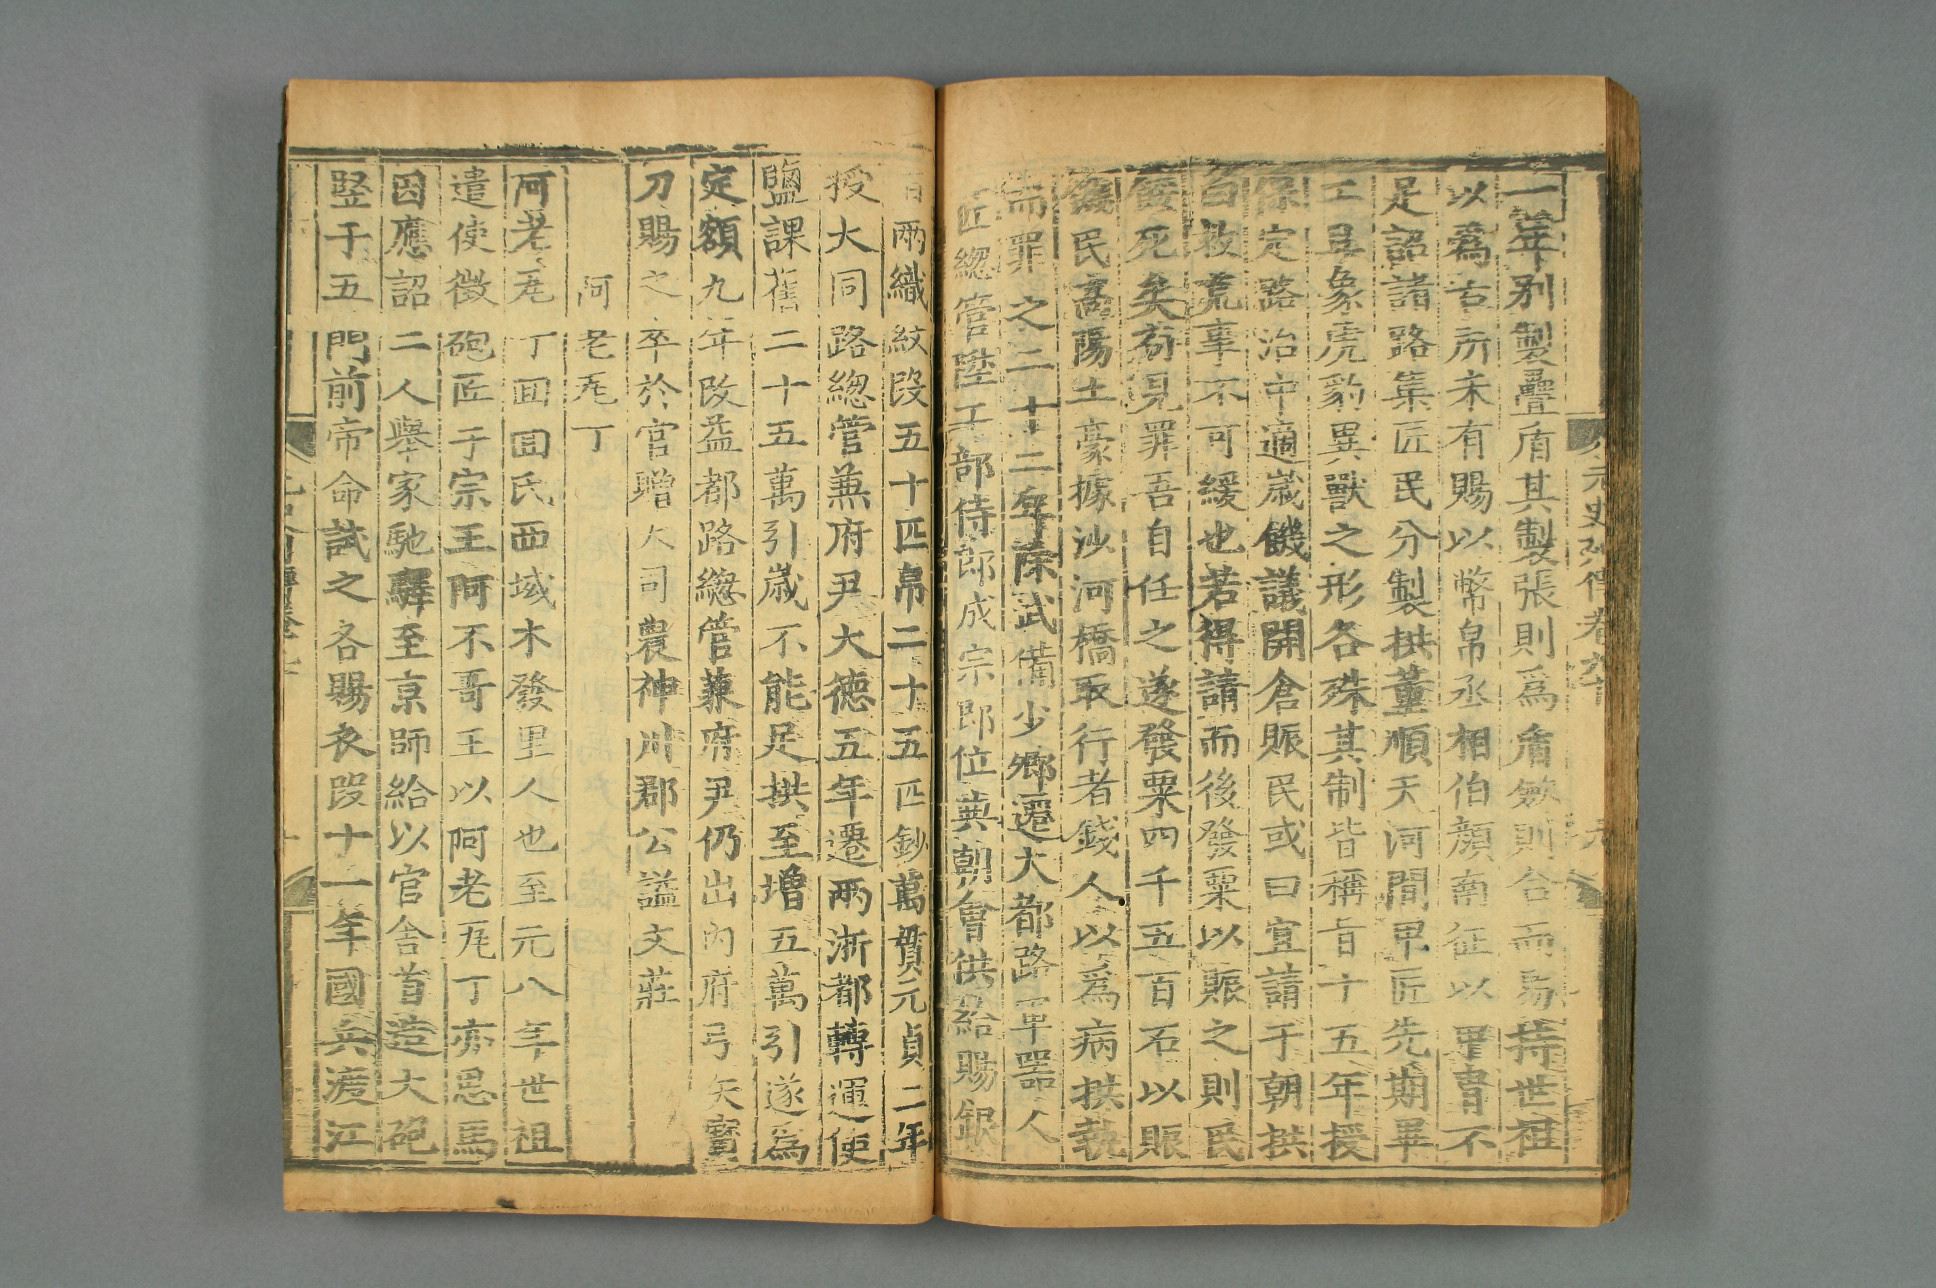 元史列傳卷九十
一年別製疊盾其製張則爲盾斂則合而易持世祖
以爲古所未有賜以幣帛丞相伯顏南征以甲冑不
足詔諸路集匠民分製拱董順天河間甲匠先期畢
工且象虎豹異獸之形各殊其制皆稱旨十五年授
保定路治中適歲饑議開倉賑民或曰宜請于朝拱
曰救荒事不可緩也若得請而後發粟以賑之則民
餒死矣苟見罪吾自任之遂發粟四千五百石以賑
饑民高陽土豪據沙河橋取行者錢人以爲病拱執
而罪之二十二年除武備少卿遷大都路軍器人
匠總管陞工部侍郎成宗即位典朝會供給賜銀
百兩織紋段五十匹帛二十五匹鈔萬貫元貞二年
授大同路總管兼府尹大德五年遷兩浙都轉運使
鹽課舊二十五萬引歲不能足拱至增五萬引遂爲
定額九年改益都路總管兼府尹仍出內府弓矢寶
刀賜之卒於官贈大司農神川郡公諡文莊
阿老瓦丁
阿老瓦丁回回氏西域木發里人也至元八年世祖
遣使徵砲匠于宗王阿不哥王以阿老瓦丁亦思馬
因應詔二人舉家馳驛至京師給以官舍首造大砲
竪于五門前帝命試之各賜衣段十一年國兵渡江